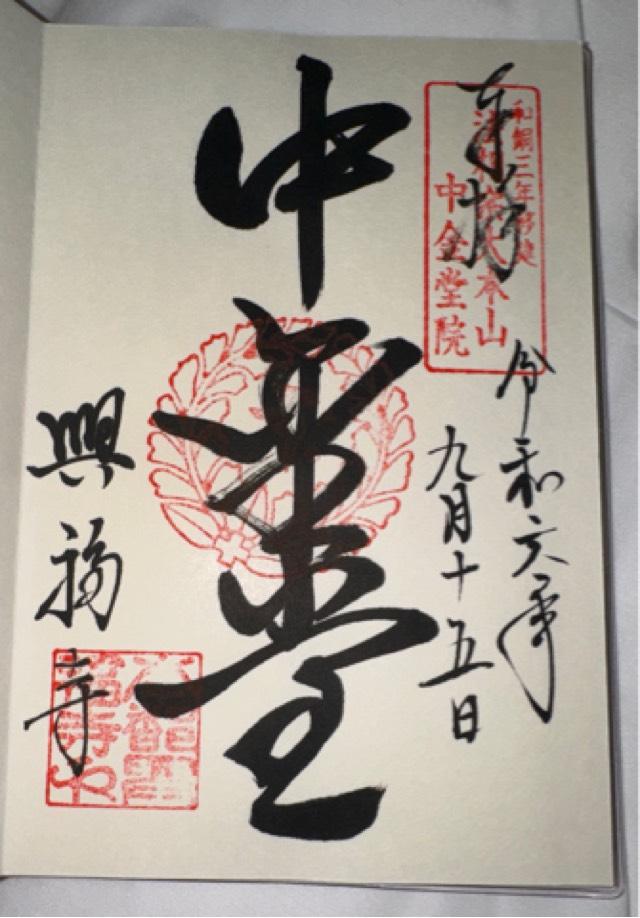 奉拝
和銅三年移建
法相宗大本山
中金堂院
令和六年
九月十五日
中金堂
興福寺